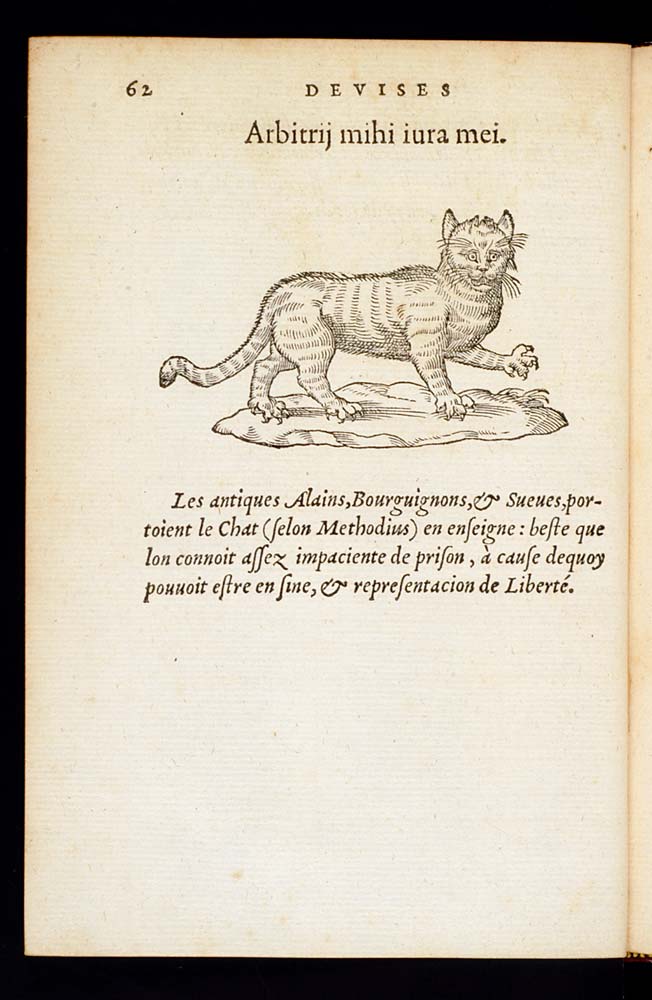 62 DEVISES
Arbitrij mihi iura mei.
Les antiques Alains, Bourguignons, & Sueues, por-
toient le Chat (ſelon Methodius) en enſeigne: beſte que
lon connoit aſſez impaciente de priſon, à cauſe dequoy
pouuoit eſtre en ſine, & repreſentacion de Liberté.